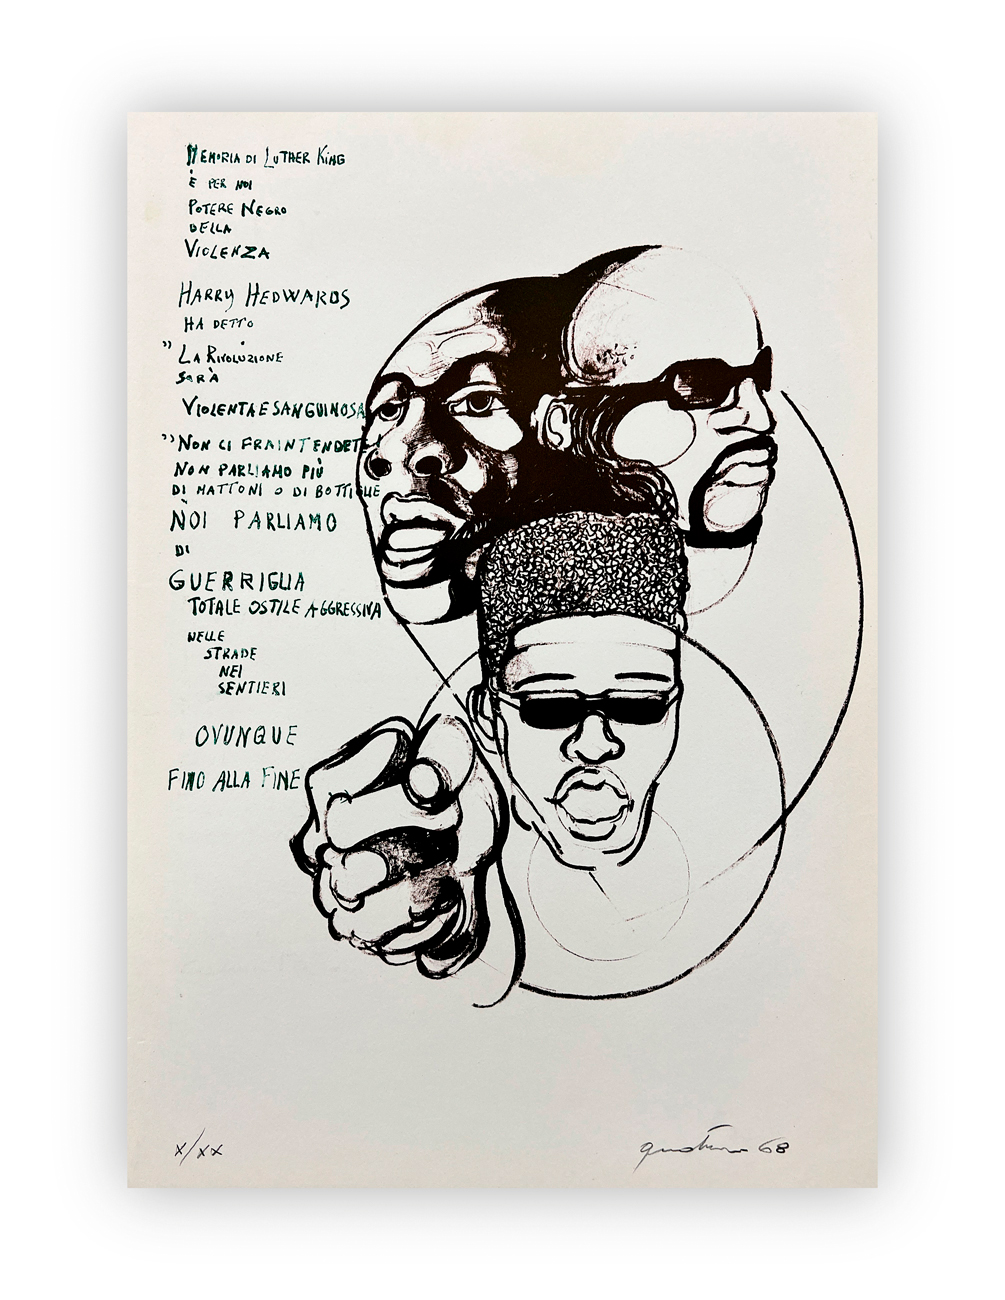 MEMORIA DI LUTHER KING
È PER NOI
POTERE NEGRO
DELLA
VIOLENZA
HARRY HEDWARDS
HA DETTO
" LA RIVOLUZIONE
SARÀ
VIOLENTA E SANGUINOSA
" NON CI FRAINTENDETE!
NON PARLIAMO PIÙ
DI MATTONI O DI BOTTIGLIE
NOI PARLIAMO
DI
GUERRIGLIA
TOTALE OSTILE AGGRESSIVA
NELLE
STRADE
NEI
SENTIERI
OVUNQUE
FINO ALLA FINE
X/XX
68